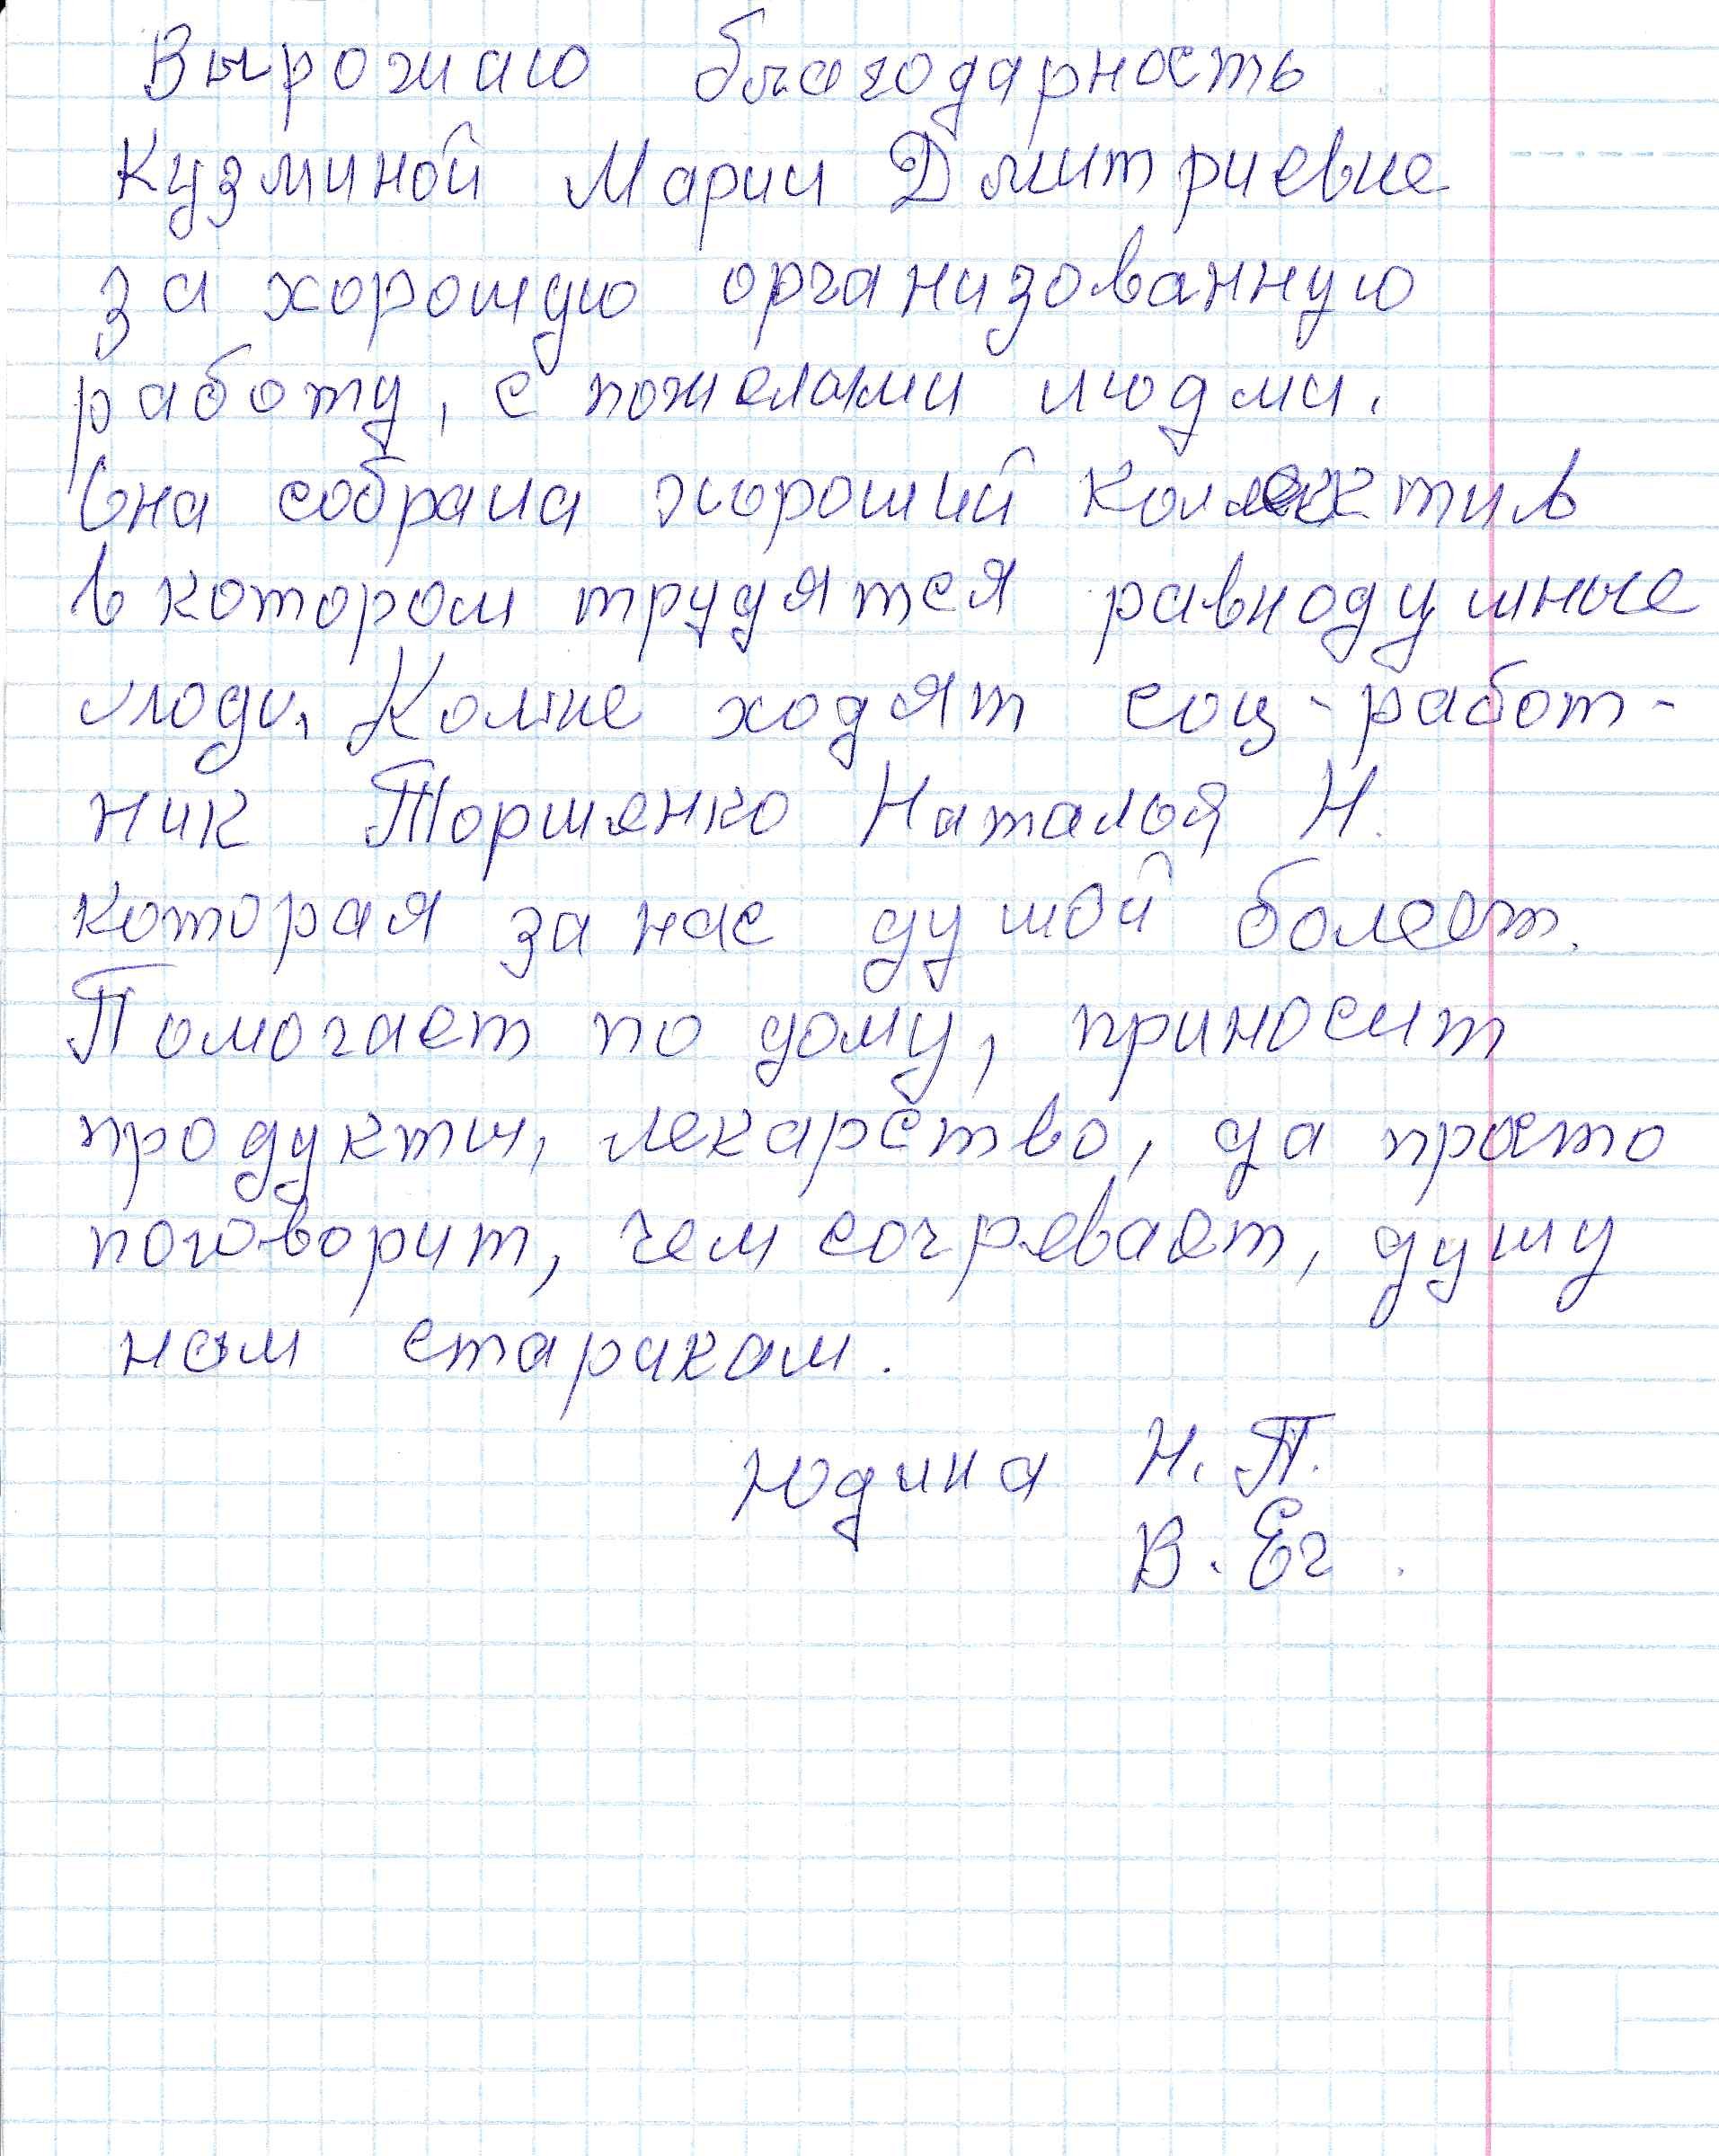 Вырожаю благодарность
Кузминой Марии Дмитриевне
за хорошую организованную
работу, с пожелами людми.
Она собрала хороший коллектив
в котором трудятся равнодушные
люди, Комне ходят соц-работ-
ник Торшенко Наталья Н.
которая за нас душой болеет.
Помогает по дому, приносит
продукты, лекарство, да просто
поговорит, чем согревает, душу
нам старикам.
Юдина Н. П.
В. Ег.